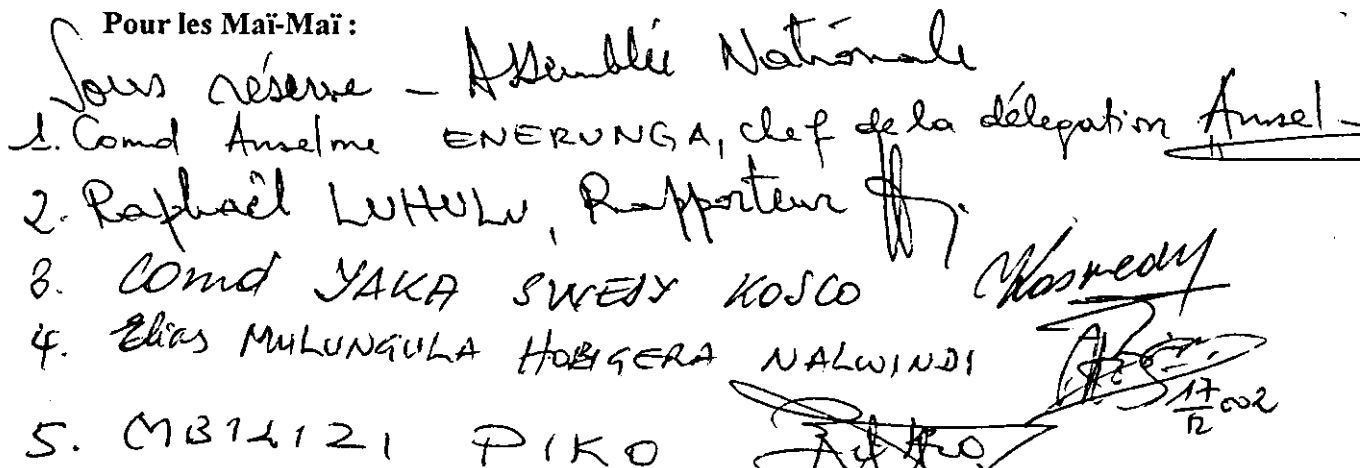 Pour les Maï-Maï :
Sous réserve - Assemblée Nationale
1. Comd Anselme ENERUNGA, chef de la délégation Ansel-
2. Raphaël LUHULU, Rapporteur
3. Comd YAKA SWEDY KOSCO
4. Elias MULUNGULA HOBIGERA NALWINDI
17/12 002
5. MBILIZI PIKO